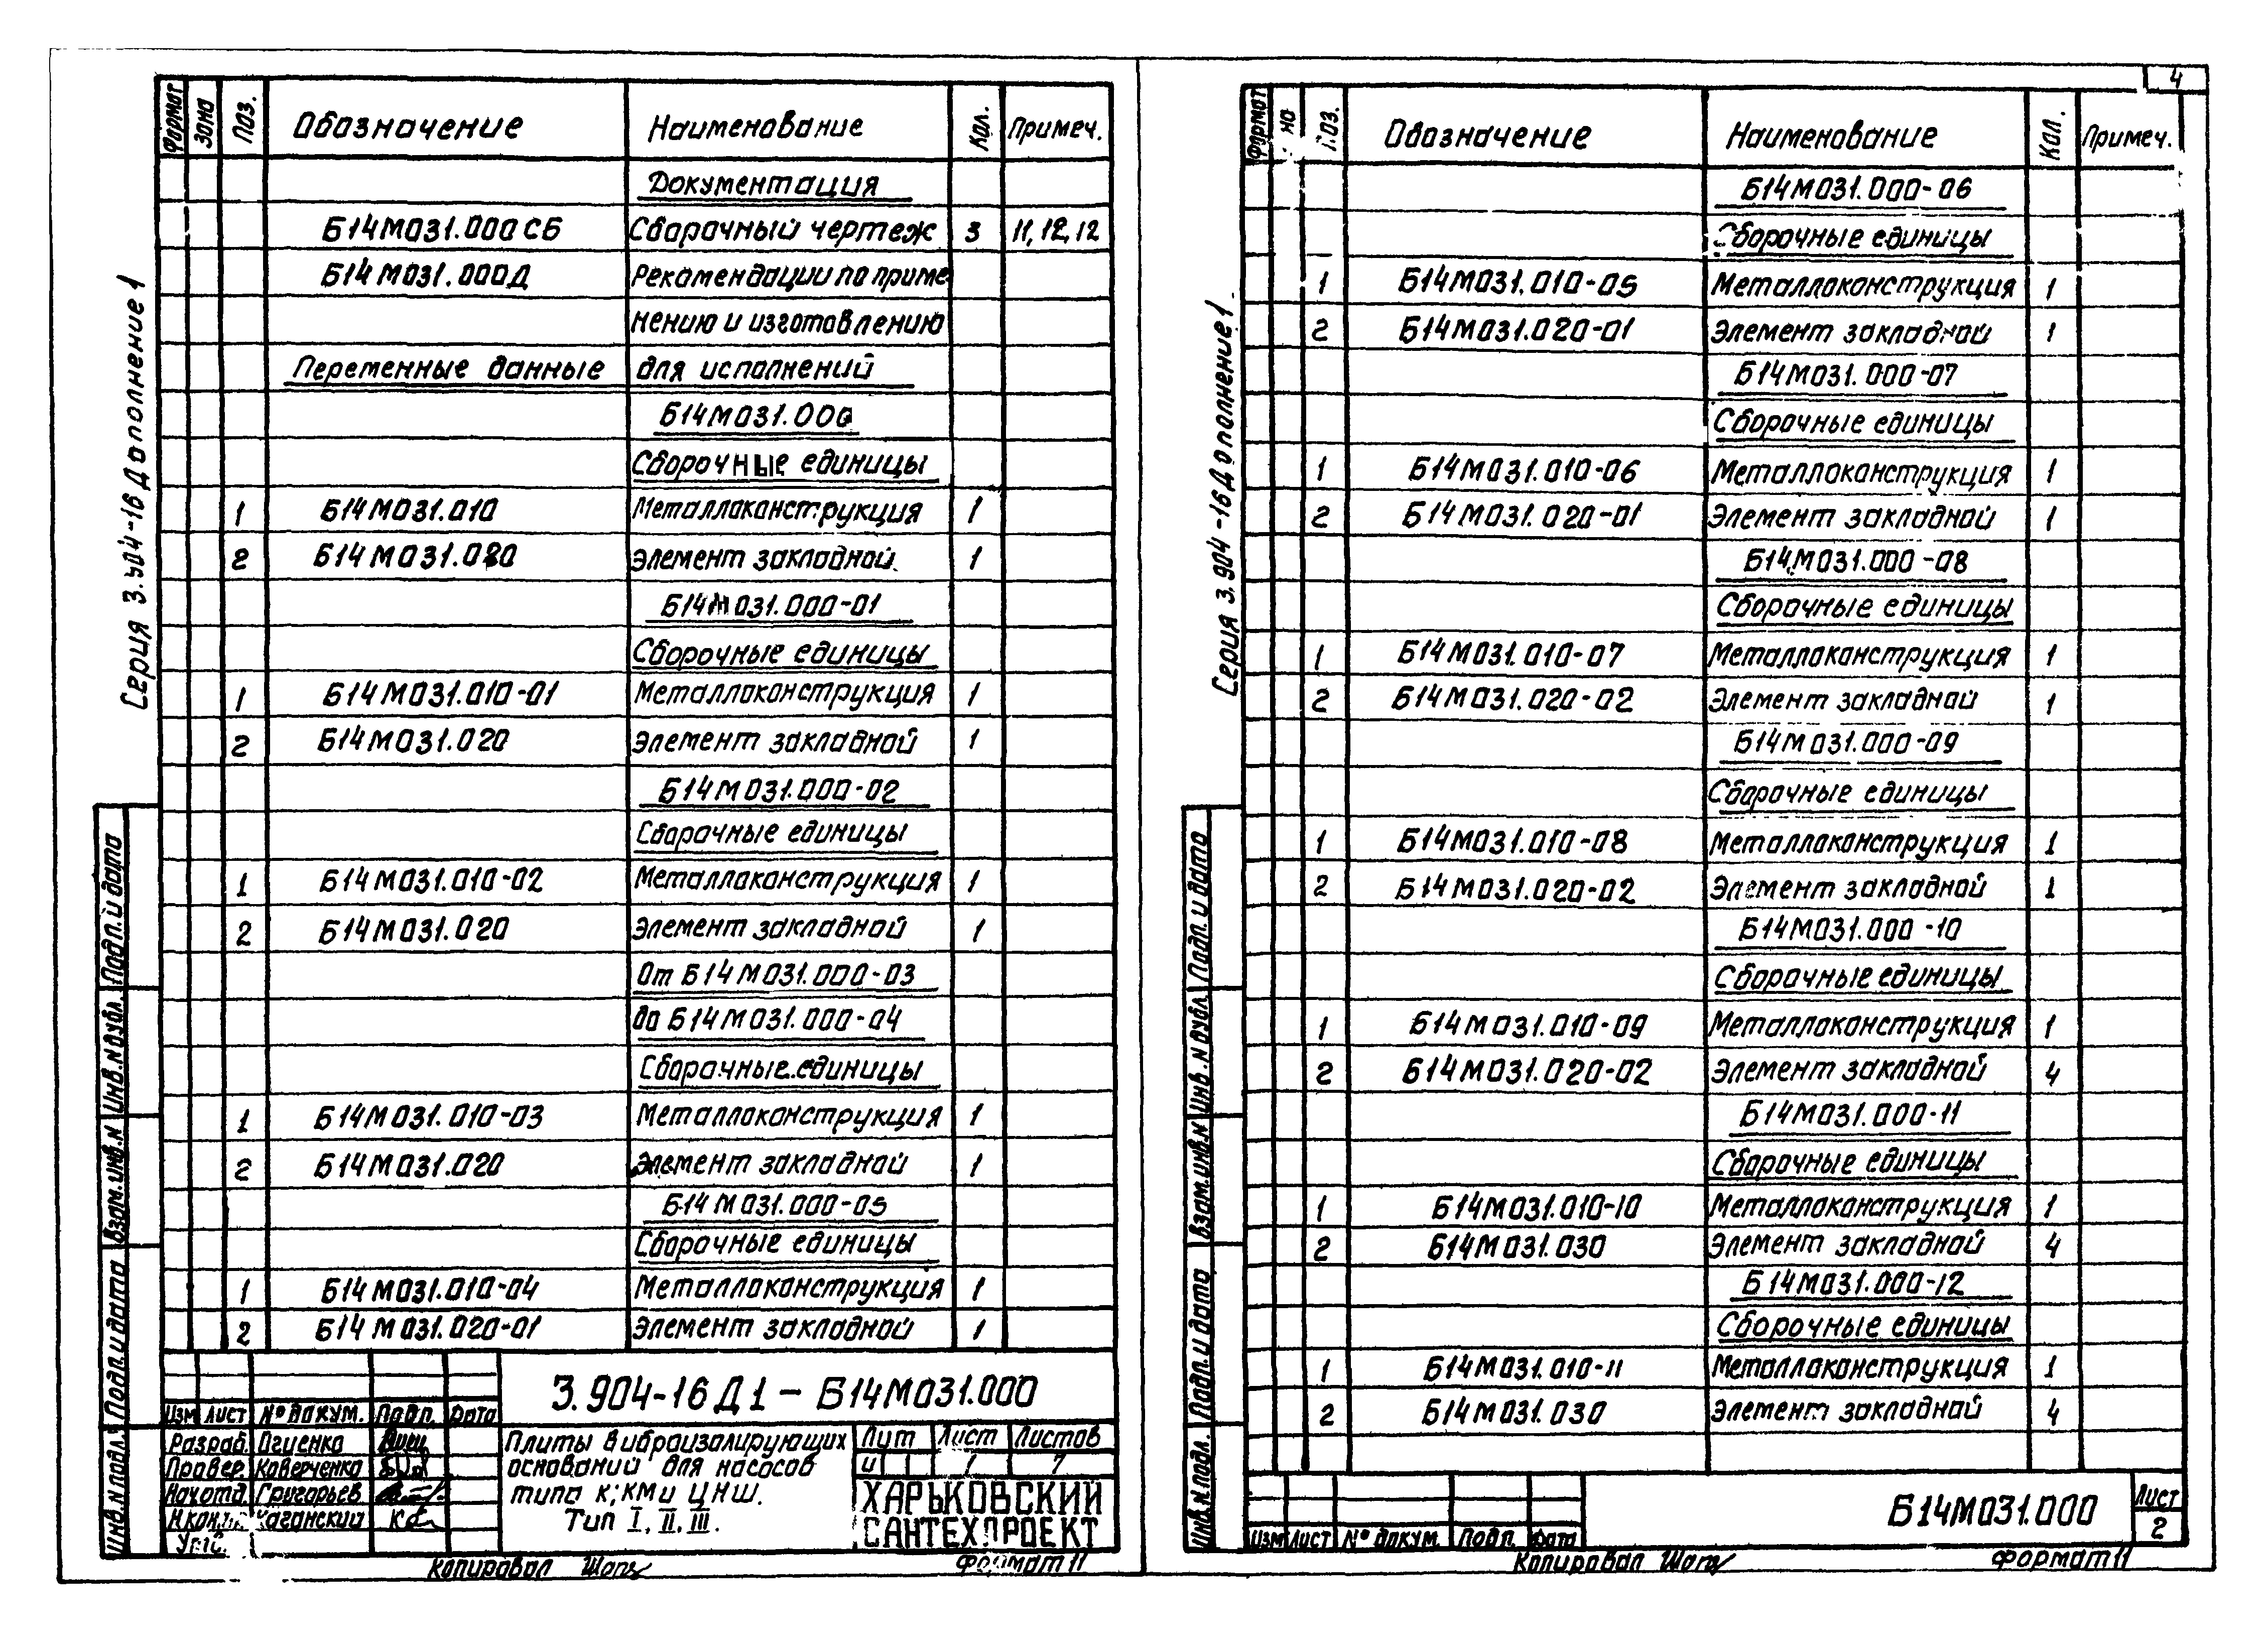 4
Серия 3.904-16 Дополнение 1
Формат Зона Поз. Обозначение Наименование Кол. Примеч.
Документация
Б14М031.000СБ Сборочный чертеж 3 11,12,12
Б14М031.000Д Рекомендации по приме
нению и изготовлению
Переменные данные для исполнений
Б14М031.000
Сборочные единицы
1 Б14М031.010 Металлоконструкция 1
2 Б14М031.020 Элемент закладной 1
Б14М031.000-01
Сборочные единицы
1 Б14М031.010-01 Металлоконструкция 1
2 Б14М031.020 Элемент закладной 1
Б14М031.000-02
Сборочные единицы
1 Б14М031.010-02 Металлоконструкция 1
2 Б14М031.020 Элемент закладной 1
От Б14М031.000-03
до Б14М031.000-04
Сборочные единицы
1 Б14М031.010-03 Металлоконструкция 1
2 Б14М031.020 Элемент закладной 1
Б14М031.000-05
Сборочные единицы
1 Б14М031.010-04 Металлоконструкция 1
2 Б14М031.020-01 Элемент закладной 1
Инв.N подл. Подп. и дата Взам.инв.N Инв.N дубл. Подп. и дата
3.904-16 Д1 - Б14М031.000
Изм Лист N° докум. Подп. Дата
Разраб. Огиенко
Провер. Коверченко
Нач.отд. Григорьев
Н.кон. Каганский
Плиты виброизолирующих
оснований для насосов
типа К; КМ и ЦНШ.
Тип I, II, III.
Лит Лист Листов
и 1 7
ХАРЬКОВСКИЙ
САНТЕХПРОЕКТ
Копировал Формат 11
Серия 3.904-16 Дополнение 1
Формат на Поз. Обозначение Наименование Кол. Примеч.
Б14М031.000-06
Сборочные единицы
1 Б14М031.010-05 Металлоконструкция 1
2 Б14М031.020-01 Элемент закладной 1
Б14М031.000-07
Сборочные единицы
1 Б14М031.010-06 Металлоконструкция 1
2 Б14М031.020-01 Элемент закладной 1
Б14М031.000-08
Сборочные единицы
1 Б14М031.010-07 Металлоконструкция 1
2 Б14М031.020-02 Элемент закладной 1
Б14М031.000-09
Сборочные единицы
1 Б14М031.010-08 Металлоконструкция 1
2 Б14М031.020-02 Элемент закладной 1
Б14М031.000-10
Сборочные единицы
1 Б14М031.010-09 Металлоконструкция 1
2 Б14М031.020-02 Элемент закладной 4
Б14М031.000-11
Сборочные единицы
1 Б14М031.010-10 Металлоконструкция 1
2 Б14М031.030 Элемент закладной 4
Б14М031.000-12
Сборочные единицы
1 Б14М031.010-11 Металлоконструкция 1
2 Б14М031.030 Элемент закладной 4
Инв.N подл. Подп. и дата Взам.инв.N Инв.N дубл. Подп. и дата
Изм Лист N° докум. Подп. Дата
Б14М031.000
Лист
2
Копировал Формат 11